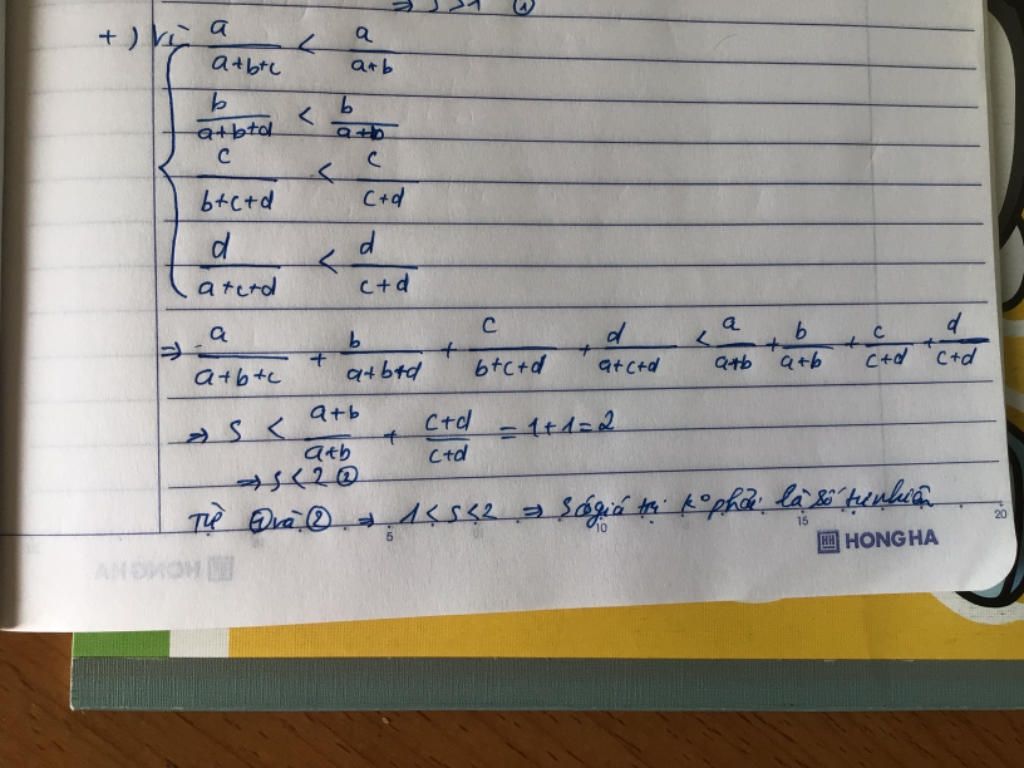 ⇒ S>1 ①
+) Vì a/(a+b+c) < a/(a+b)
b/(a+b+d) < b/(a+b)
c/(b+c+d) < c/(c+d)
d/(a+c+d) < d/(c+d)
⇒ a/(a+b+c) + b/(a+b+d) + c/(b+c+d) + d/(a+c+d) < a/(a+b) + b/(a+b) + c/(c+d) + d/(c+d)
⇒ S < (a+b)/(a+b) + (c+d)/(c+d) = 1+1=2
⇒ S<2 ②
Từ ① và ② ⇒ 1<S<2 ⇒ S có giá trị k° phải là số tự nhiên
5 10 15 20
HONG HA
HONG HA